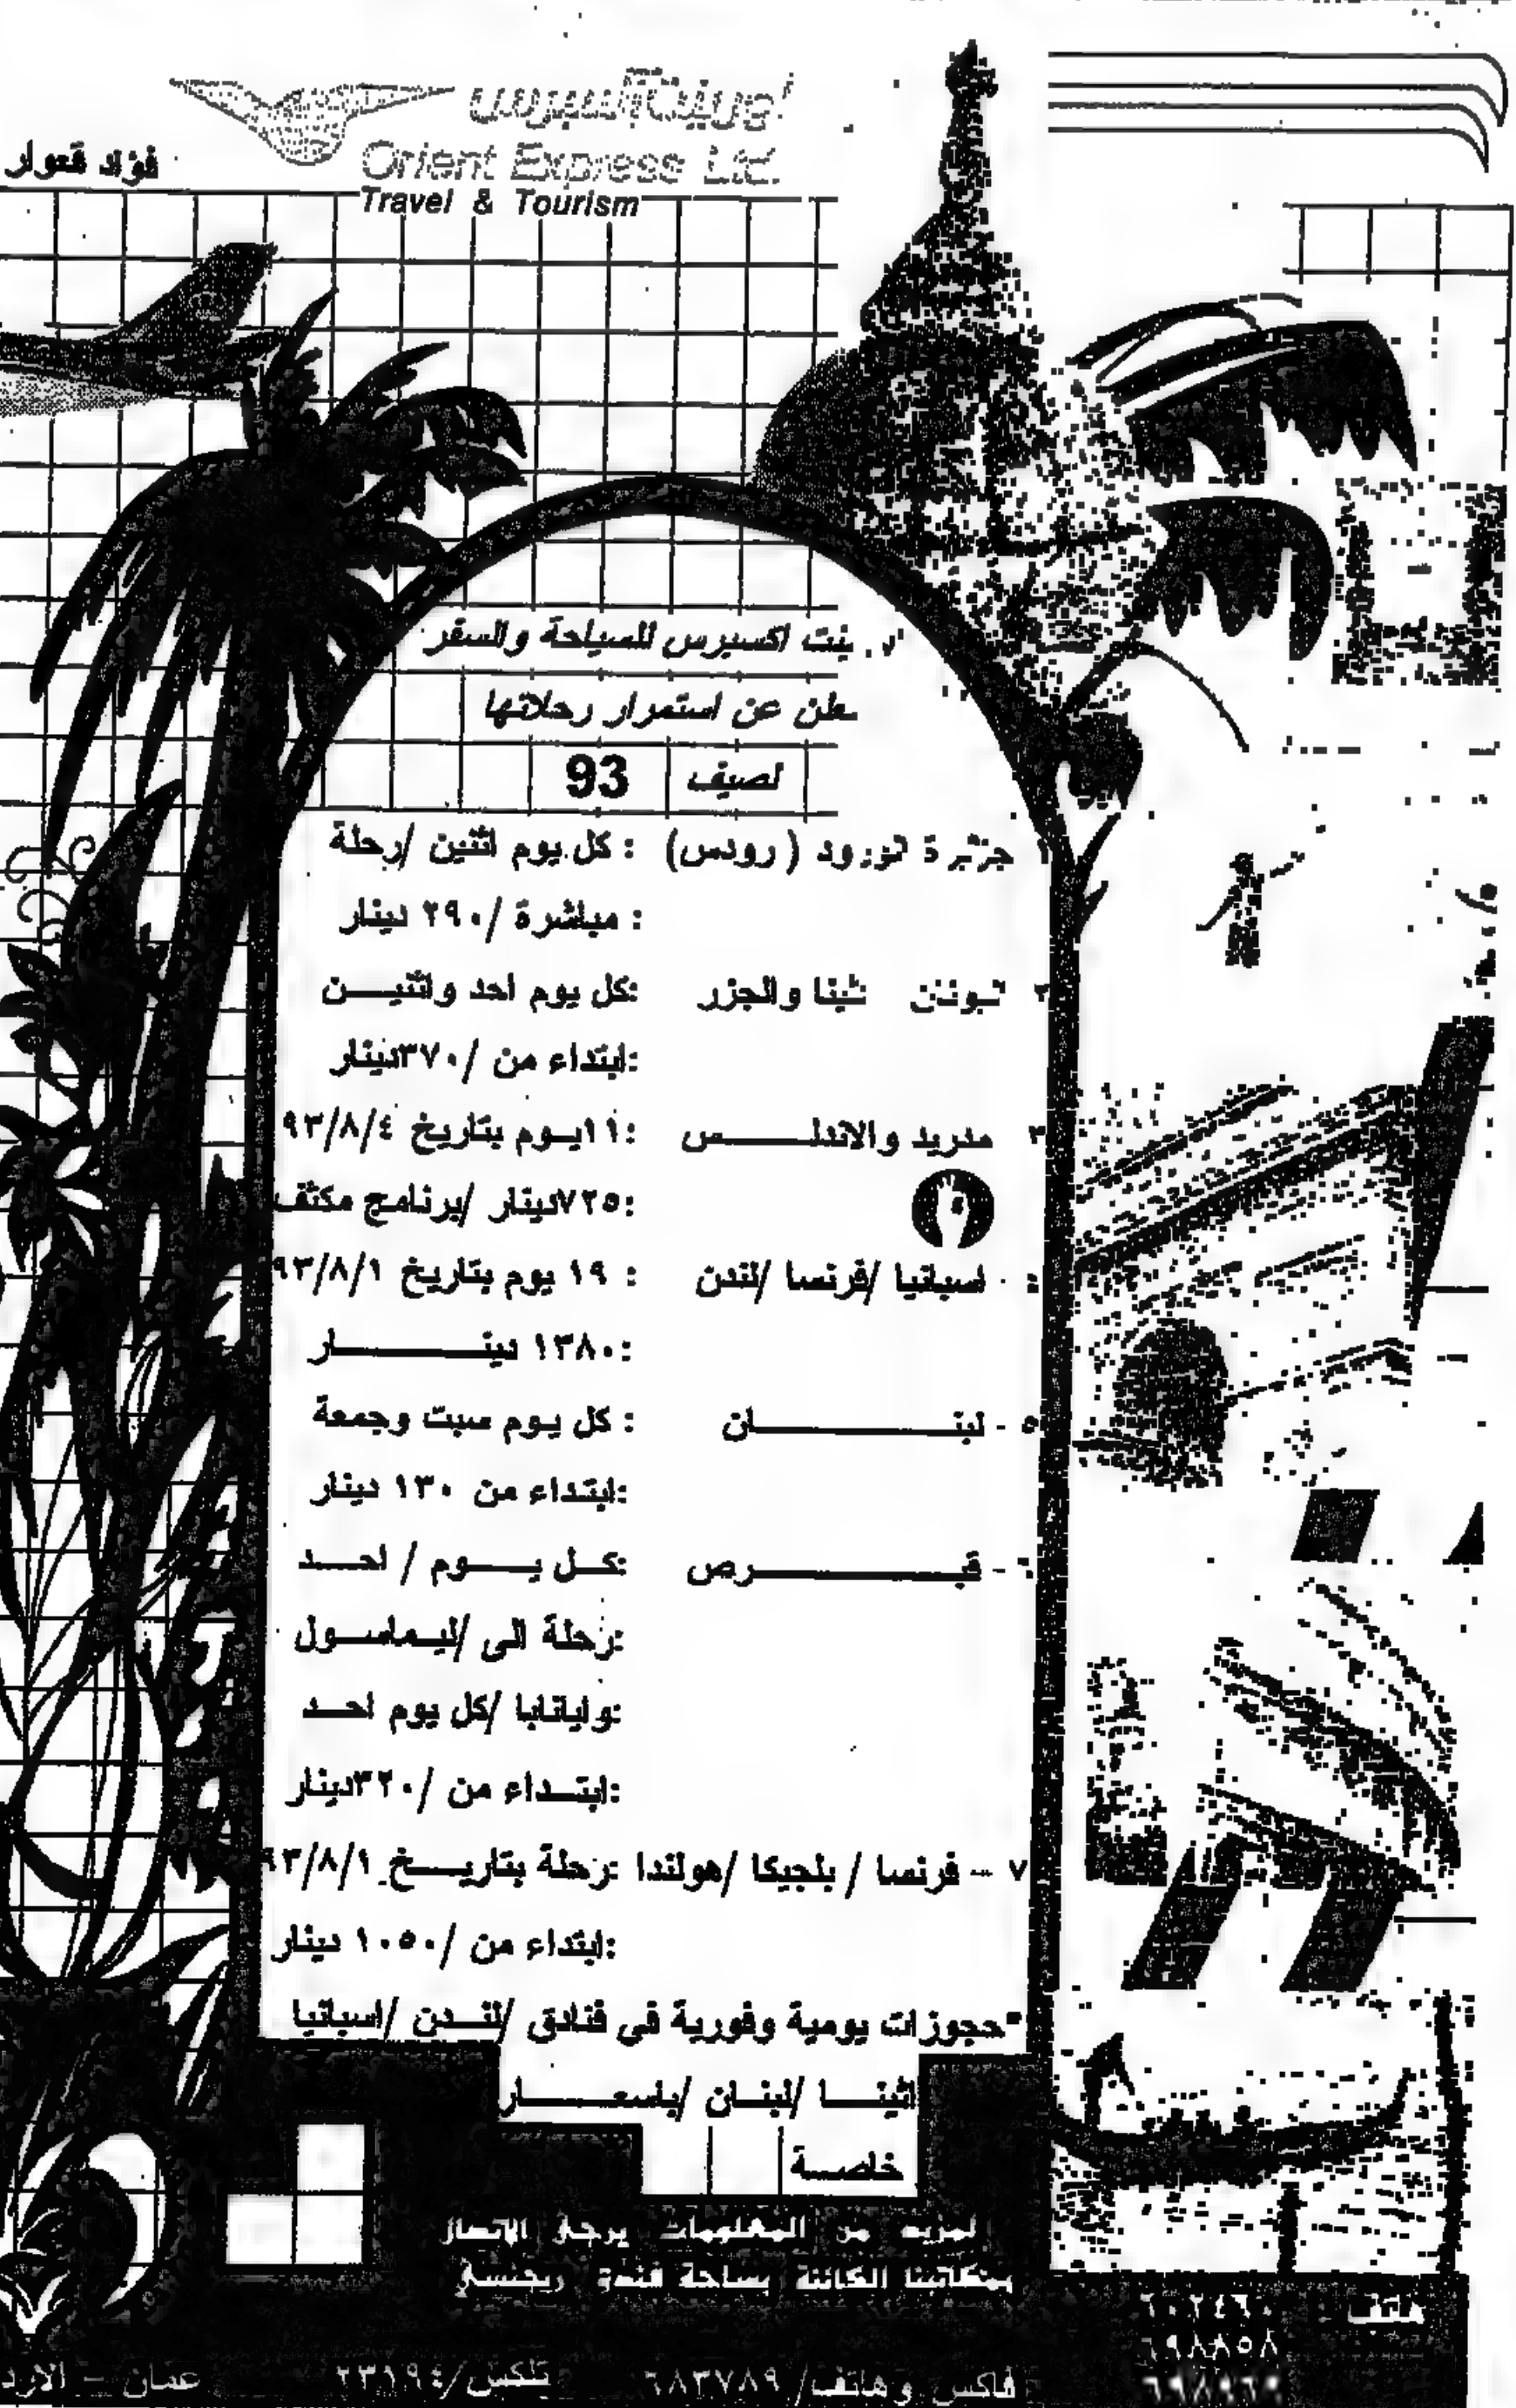 اورينت اكسبرس
Orient Express Ltd.
Travel & Tourism
فؤاد قعوار
ينت اكسبرس للسياحة والسفر
علن عن استمرار رحلاتها
لصيف 93
١ جزيرة الورود (رودس) : كل يوم اثنين /رحلة
: مباشرة /٢٩٠ دينار
٢ اليونان اثينا والجزر :كل يوم احد واثنيـــن
:ابتداء من /٣٧٠دينار
٣ مدريد والاندلــــــس :١١يـوم بتاريخ ٩٣/٨/٤
:٧٢٥دينار /برنامج مكثف
٤ - اسبانيا /فرنسا /لندن : ١٩ يوم بتاريخ ٩٣/٨/١
:١٣٨٠ دينـــــــــار
٥ - لبنــــــــــــان : كل يـوم سبت وجمعة
:ابتداء من ١٣٠ دينار
٦ - قبــــــــــــرص :كــل يــــوم / احــــد
:رحلة الى /ليـماسـول
:وايانابا /كل يوم احــد
:ابتــداء من /٣٢٠دينار
٧ - فرنسا / بلجيكا /هولندا :رحلة بتاريـــخ ٩٣/٨/١
:ابتداء من /١٠٥٠ دينار
*حجوزات يومية وفورية في فنادق /لنــدن /اسبانيا
اثينــــا /لبنــان /باسعـــــــار
خاصـــة
لمزيد من المعلومات يرجى الاتصال
بمكاتبنا الكائنة بساحة فندق ريجنسي
هاتف
٦٩٨٨٥٨
٦٩٨٩٦٩
فاكس وهاتف/ ٦٨٣٧٨٩ تلكس/٢٣١٩٤ عمان - الارد